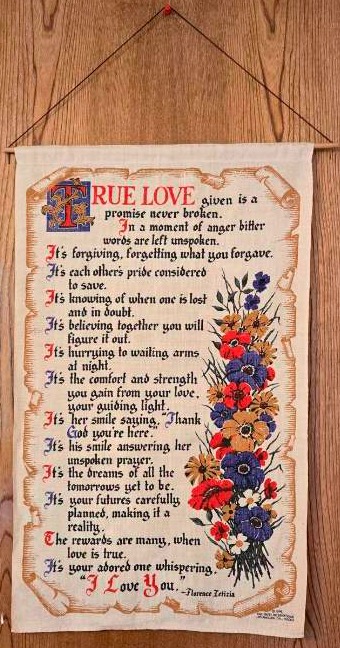 TRUE LOVE given is a
promise never broken.
In a moment of anger bitter
words are left unspoken.
It's forgiving, forgetting what you forgave.
It's each other's pride considered
to save.
It's knowing of when one is lost
and in doubt.
It's believing together you will
figure it out.
It's hurrying to waiting arms
at night.
It's the comfort and strength
you gain from your love,
your guiding light.
It's her smile saying, "Thank
God you're here.
It's his smile answering her
unspoken prayer.
It's the dreams of all the
tomorrows yet to be.
It's your futures carefully
planned, making it a
reality.
The rewards are many, when
love is true.
It's your adored one whispering,
"I Love You."
—Florence Letizia